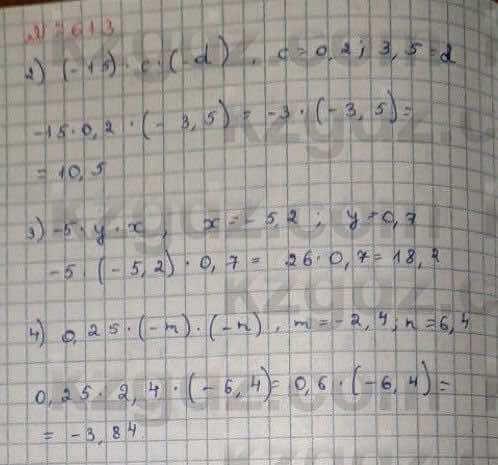 2) (-15) · c · (-d), c = 0,2; 3,5 = d
-15 · 0,2 · (-3,5) = -3 · (-3,5) =
= 10,5
3) -5 · y · x, x = -5,2; y = 0,7
-5 · (-5,2) · 0,7 = 26 · 0,7 = 18,2
4) 0,25 · (-m) · (-n), m = -2,4; n = 6,4
0,25 · 2,4 · (-6,4) = 0,6 · (-6,4) =
= -3,84